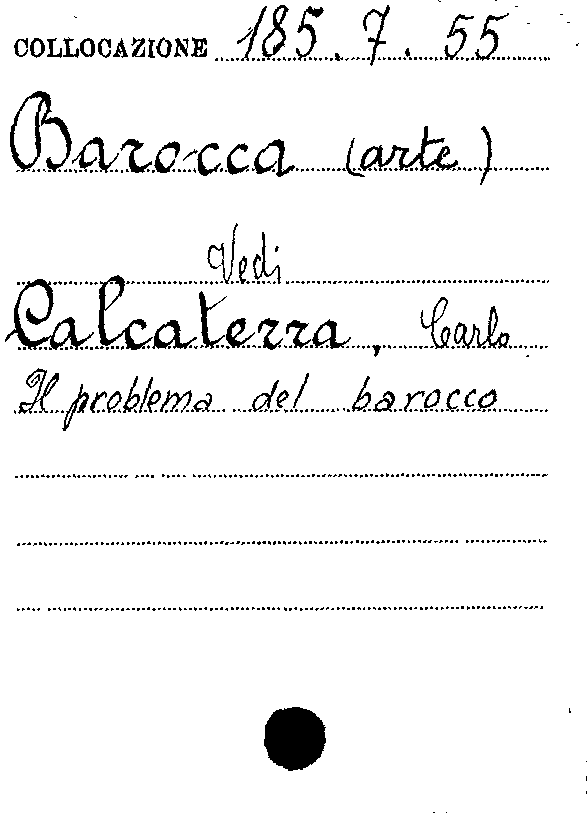 COLLOCAZIONE 185.7.55
Barocca (arte)
Vedi
Calcaterra, Carlo
Il problema del barocco